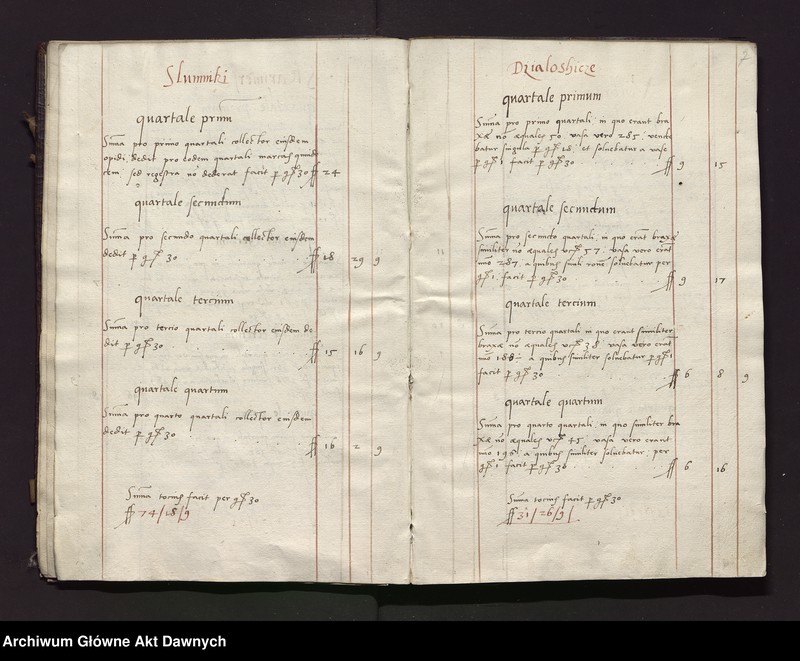 Slumniki
quartale primi
Suma pro primo quartali collector eiusdem
opidi dedit pro eodem quartali marcas quinde
cem sed regestra no dederat facit p gs 30 ff 24
quartale secundum
Suma pro secundo quartali collector eiusdem
dedit p gs 30 ff 18 29 9
quartale tercium
Suma pro tercio quartali collector eiusdem de
dit p gs 30 ff 15 16 9
quartale quartum
Suma pro quarto quartali collector eiusdem
dedit p gs 30
ff 16 2 9
Suma tocius facit per gs 30
ff 74/18/9
2
Dzialoshicze
quartale primum
Suma pro primo quartali in quo erant bra
xæ no æquales 50 vasa vero 285 vende
batur singula p gs 18 et soluebatur a vase
p gs 1 facit p gs 30 ff 9 15
quartale secundum
Suma pro secundo quartali in quo erat braxæ
similiter no æquales 57 vasa vero erat
nuo 287 a quibus simili soluebatur per
gs 1 facit p gs 30 ff 9 17
quartale tercium
Suma pro tercio quartali in quo erant similiter
braxæ no æquales 38 vasa vero erat
nuo 188 a quibus similiter soluebatur p gs 1
facit p gs 30 ff 6 8 9
quartale quartum
Suma pro quarto quartali in quo similiter bra
xæ no æquales 45 vasa vero erant
nuo 196 a quibus similiter soluebatur per
gs 1 facit p gs 30 ff 6 16
Suma tocius facit p gs 30
ff 31/26/9/
Archiwum Główne Akt Dawnych